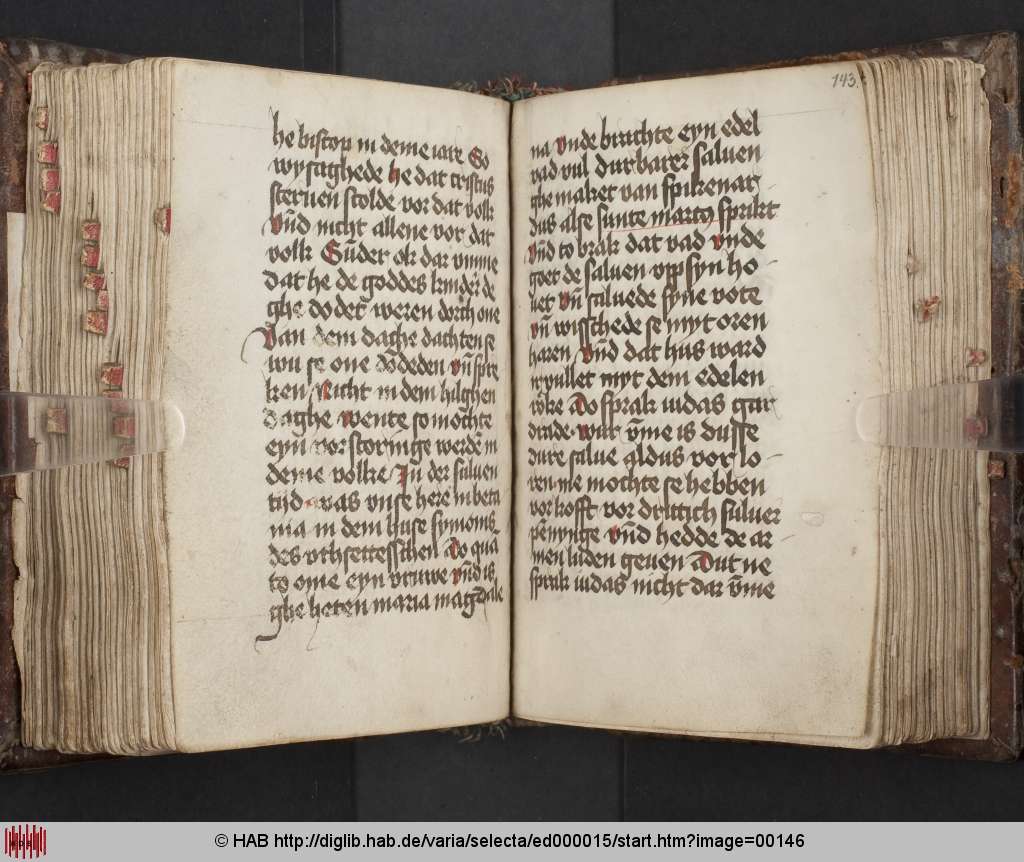 he biscop in deme iare So
wyssaghede he dat cristus
steruen scolde vor dat volk
Vn̄d nicht allene vor dat
volk Sūder ok dar vmme
dat he de goddes kinder de
ghe dodet weren dorch one
Van dem daghe dachten se
wu se one dodeden vn̄ spre
ken Nicht in dem hilghen
daghe wente so mochte
eyn vorstoringe werdē in
deme volke In der suluen
tijd was vnse here in beta
nia in dem huse symonis
des vthsettesschen Do qua
to ome eyn vruwe vn̄d is
ghe heten maria magdale
143.
na vnde brachte eyn edel
vad vul durbarer saluen
ghe maket van spikenar
dus alse sunte marcus sprikt
vn̄d to brak dat vad vnde
goet de saluen vpp syn ho
uet vn̄ saluede syne vote
vn̄ wisschede se myt oren
haren vn̄d dat hus ward
vpullet myt dem edelen
roke Do sprak iudas
wur v̄me is dusse
dure salue aldus vor lo
ren me mochte se hebben
vor kofft vor drittich suluer
penynge vn̄d hedde de ar
men luden geuen Dut ne
sprak iudas nicht dar v̄me
© HAB http://diglib.hab.de/varia/selecta/ed000015/start.htm?image=00146